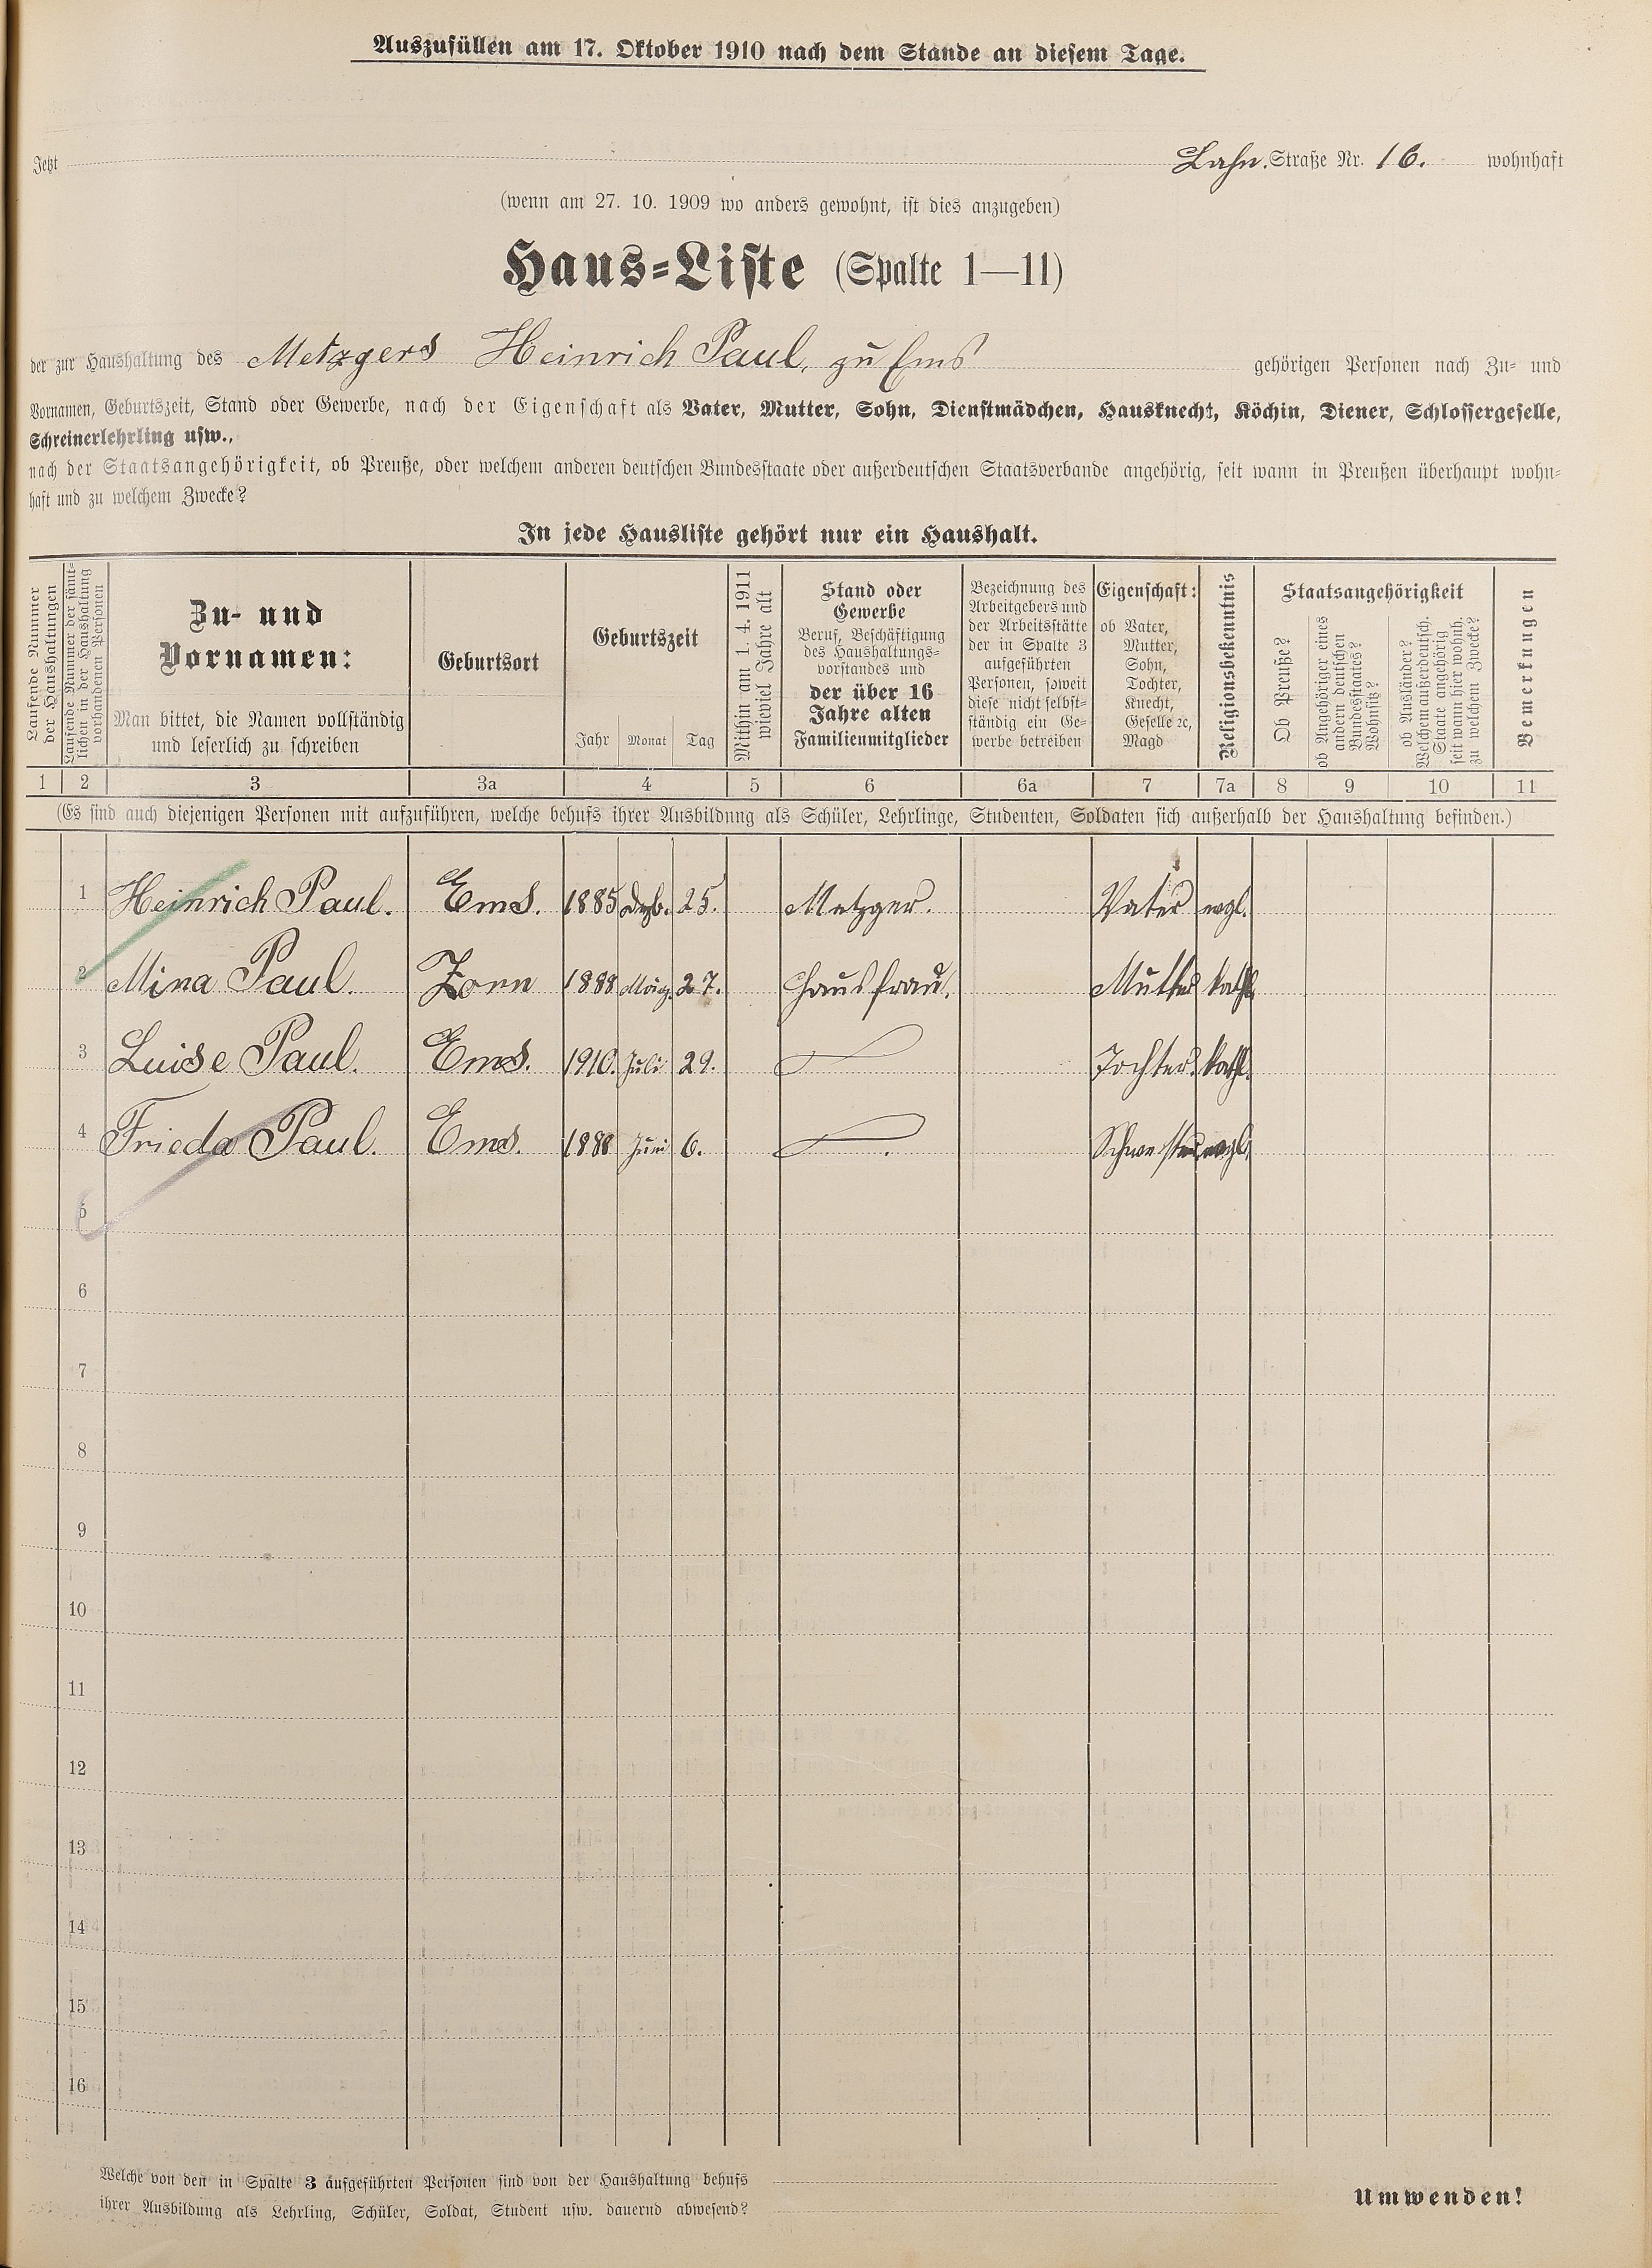 Auszufüllen am 17. Oktober 1910 nach dem Stande an diesem Tage.
Jetzt Lahn. Straße Nr. 16. wohnhaft
(wenn am 27. 10. 1909 wo anders gewohnt, ist dies anzugeben)
Haus-Liste (Spalte 1—11)
der zur Haushaltung des Metzgers Heinrich Paul, zu Ems gehörigen Personen nach Zu- und
Vornamen, Geburtszeit, Stand oder Gewerbe, nach der Eigenschaft als Vater, Mutter, Sohn, Dienstmädchen, Hausknecht, Köchin, Diener, Schlossergeselle,
Schreinerlehrling usw.,
nach der Staatsangehörigkeit, ob Preuße, oder welchem anderen deutschen Bundesstaate oder außerdeutschen Staatsverbande angehörig, seit wann in Preußen überhaupt wohn-
haft und zu welchem Zwecke?
In jede Hausliste gehört nur ein Haushalt.
Laufende Nummer
der Haushaltungen
Laufende Nummer der sämt-
lichen in der Haushaltung
vorhandenen Personen
Zu- und
Vornamen:
Man bittet, die Namen vollständig
und leserlich zu schreiben
Geburtsort
Geburtszeit
Jahr Monat Tag
Mithin am 1. 4. 1911
wieviel Jahre alt
Stand oder
Gewerbe
Beruf, Beschäftigung
des Haushaltungs-
vorstandes und
der über 16
Jahre alten
Familienmitglieder
Bezeichnung des
Arbeitgebers und
der Arbeitsstätte
der in Spalte 3
aufgeführten
Personen, soweit
diese nicht selbst-
ständig ein Ge-
werbe betreiben
Eigenschaft:
ob Vater,
Mutter,
Sohn,
Tochter,
Knecht,
Geselle ꝛc,
Magd
Religionsbekenntnis
Staatsangehörigkeit
Ob Preuße?
ob Angehöriger eines
andern deutschen
Bundesstaates?
Wohnsitz?
ob Ausländer?
Welchem außerdeutsch.
Staate angehörig
seit wann hier wohnh.
zu welchem Zwecke?
Bemerkungen
1 2 3 3a 4 5 6 6a 7 7a 8 9 10 11
(Es sind auch diejenigen Personen mit aufzuführen, welche behufs ihrer Ausbildung als Schüler, Lehrlinge, Studenten, Soldaten sich außerhalb der Haushaltung befinden.)
1 Heinrich Paul. Ems. 1885 Dezb. 25. Metzger. Vater evgl.
2 Mina Paul. Zorn 1888 März. 27. Hausfrau. Mutter kathl.
3 Luise Paul. Ems. 1910. Juli 29. Tochter. kathl.
4 Frieda Paul. Ems. 1888 Juni 6. Schwester evgl.
5
6
7
8
9
10
11
12
13
14
15
16
Welche von den in Spalte 3 aufgeführten Personen sind von der Haushaltung behufs
ihrer Ausbildung als Lehrling, Schüler, Soldat, Student usw. dauernd abwesend?
Umwenden!